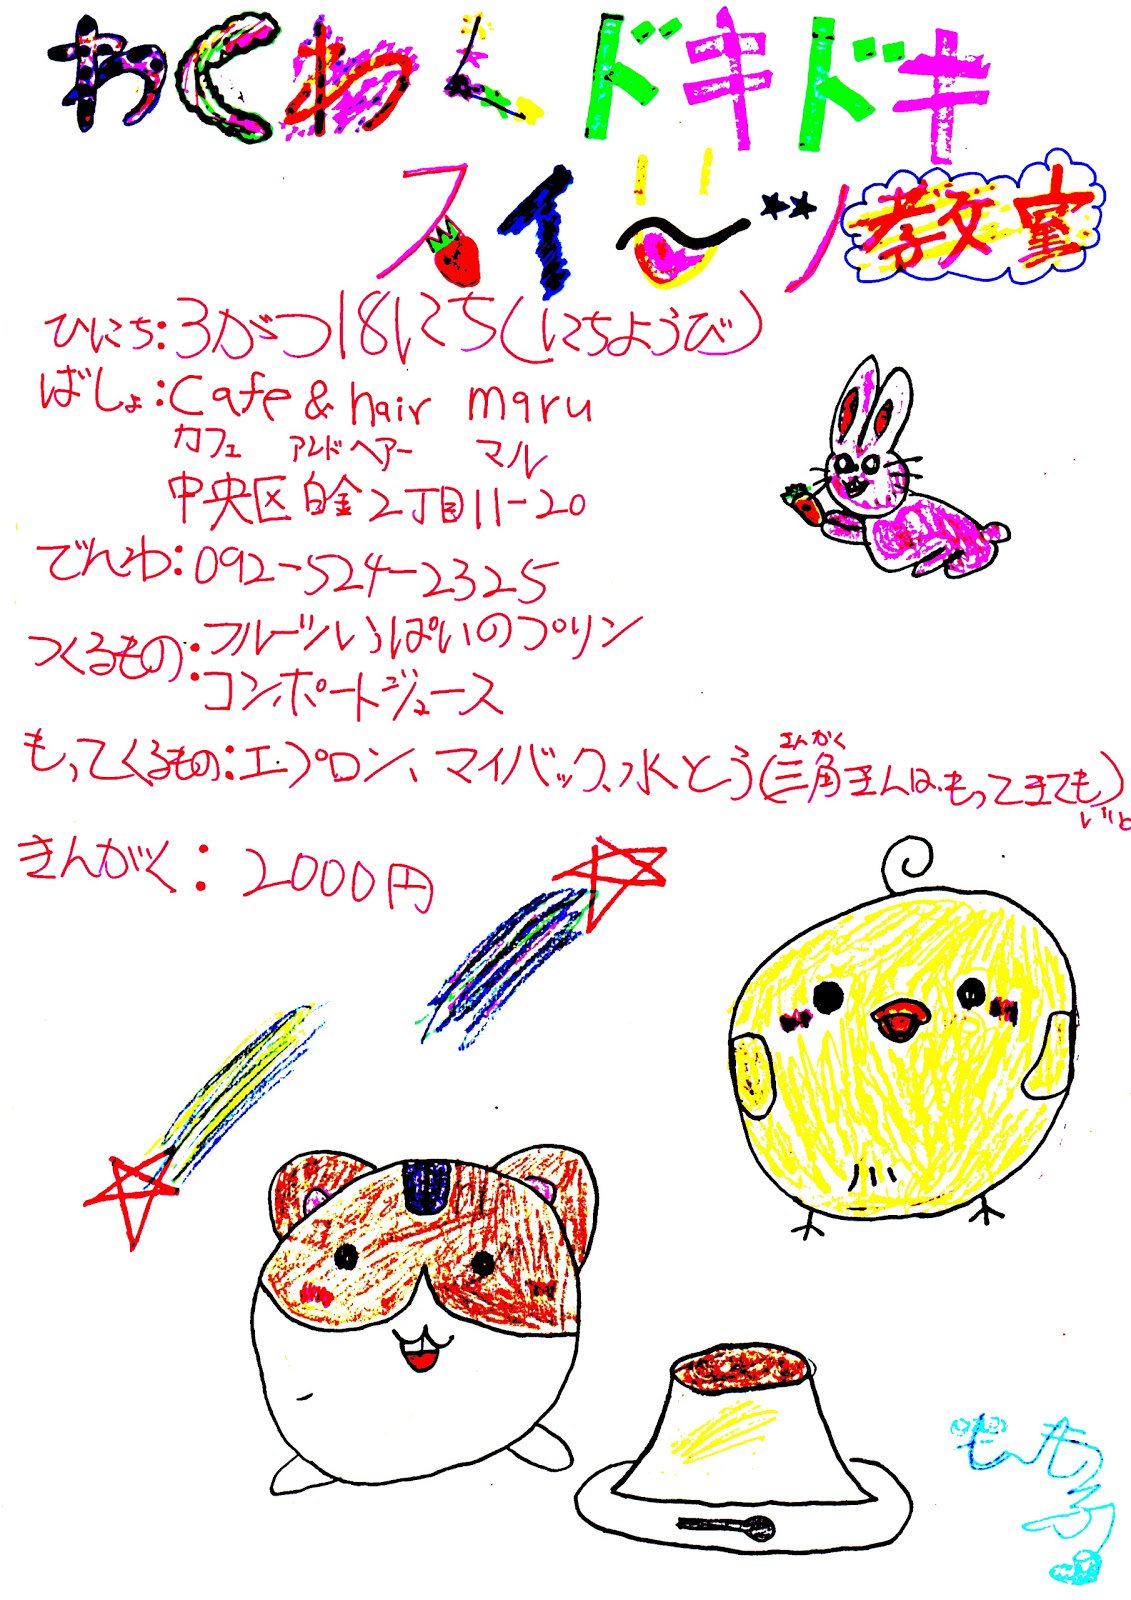 わくわくドキドキ
スイーツ教室
ひにち:3がつ18にち(にちようび)
ばしょ:cafe & hair maru
カフェ アンドヘアー マル
中央区白金2丁目11-20
でんわ:092-524-2325
つくるもの:フルーツいっぱいのプリン
:コンポートジュース
さんかく
もってくるもの:エプロン、マイバック、水とう(三角きんは、もってきても)
いいよ
きんがく:2000円